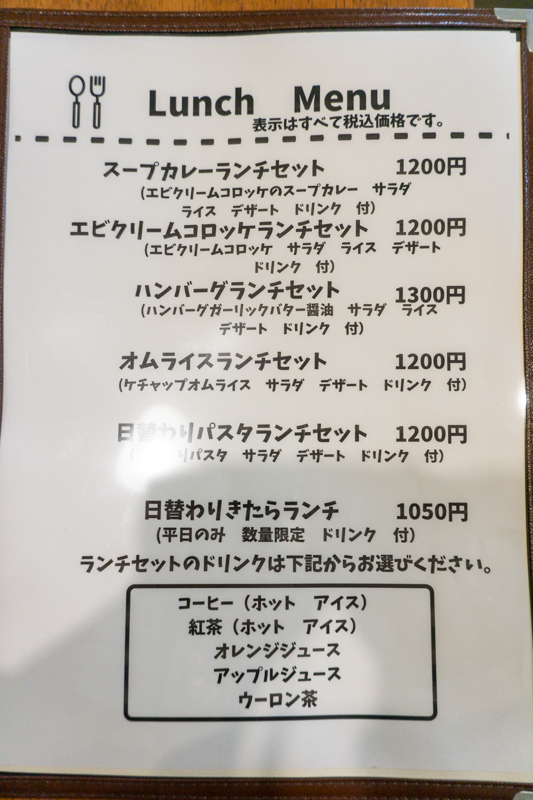 Lunch Menu
表示はすべて税込価格です。
スープカレーランチセット 1200円
(エビクリームコロッケのスープカレー サラダ
ライス デザート ドリンク 付)
エビクリームコロッケランチセット 1200円
(エビクリームコロッケ サラダ ライス デザート
ドリンク 付)
ハンバーグランチセット 1300円
(ハンバーグガーリックバター醤油 サラダ ライス
デザート ドリンク 付)
オムライスランチセット 1200円
(ケチャップオムライス サラダ デザート ドリンク 付)
日替わりパスタランチセット 1200円
パスタ サラダ デザート ドリンク 付)
日替わりきたらランチ 1050円
(平日のみ 数量限定 ドリンク 付)
ランチセットのドリンクは下記からお選びください。
コーヒー(ホット アイス)
紅茶(ホット アイス)
オレンジジュース
アップルジュース
ウーロン茶